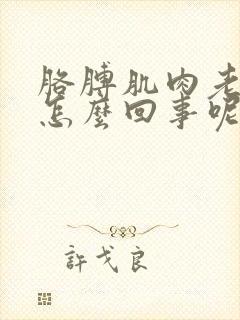 胳膊肌肉老
怎麼回事呢
許戈良